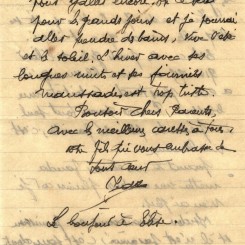 pour y aller encore
pour les grands jours et je pourrai
aller prendre des bains, vive l'été
et le soleil. L'hiver avec ses
longues nuits et ses journées
maussades est trop triste.
Bonsoir chers Parents,
avec le meilleur à tous,
votre fils qui vous embrasse de
tout cœur